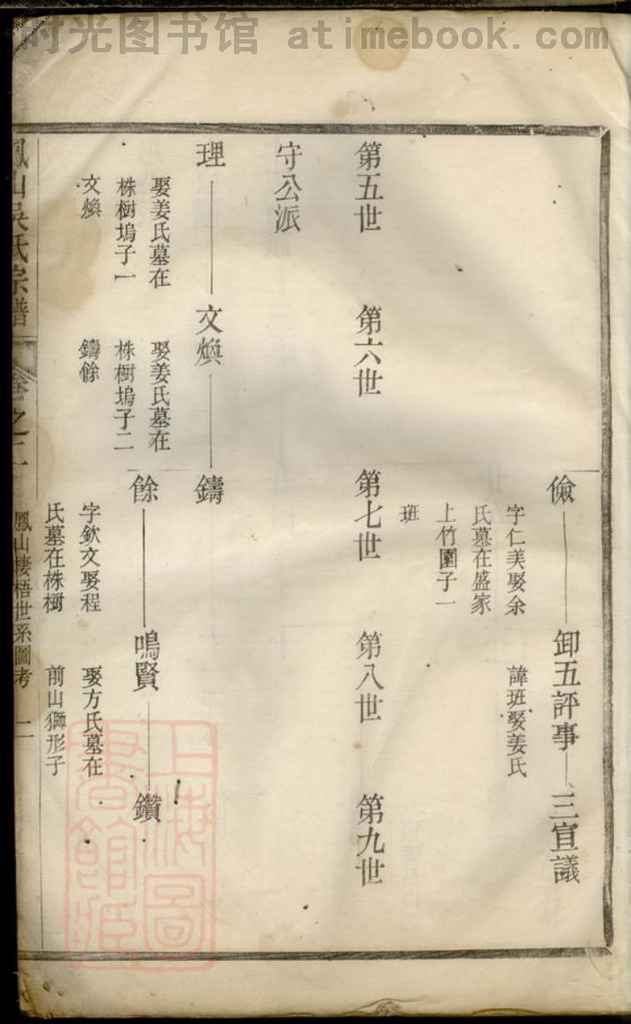 时光图书馆 atimebook.com
儉 卸五評事 三宣議
字仁美娶余
氏墓在盛家
上竹園子一
班
諱班娶姜氏
第五世 第六世 第七世 第八世 第九世
守公派
理 文煥 鑄
娶姜氏墓在
株樹塢子一
文煥
娶姜氏墓在
株樹塢子二
鑄餘
餘 鳴賢 鑽
字欽文娶程
氏墓在株樹
娶方氏墓在
前山獅形子
鳳山吳氏宗譜 卷之二 鳳山棲梧世系圖考 二
上海圖書館藏